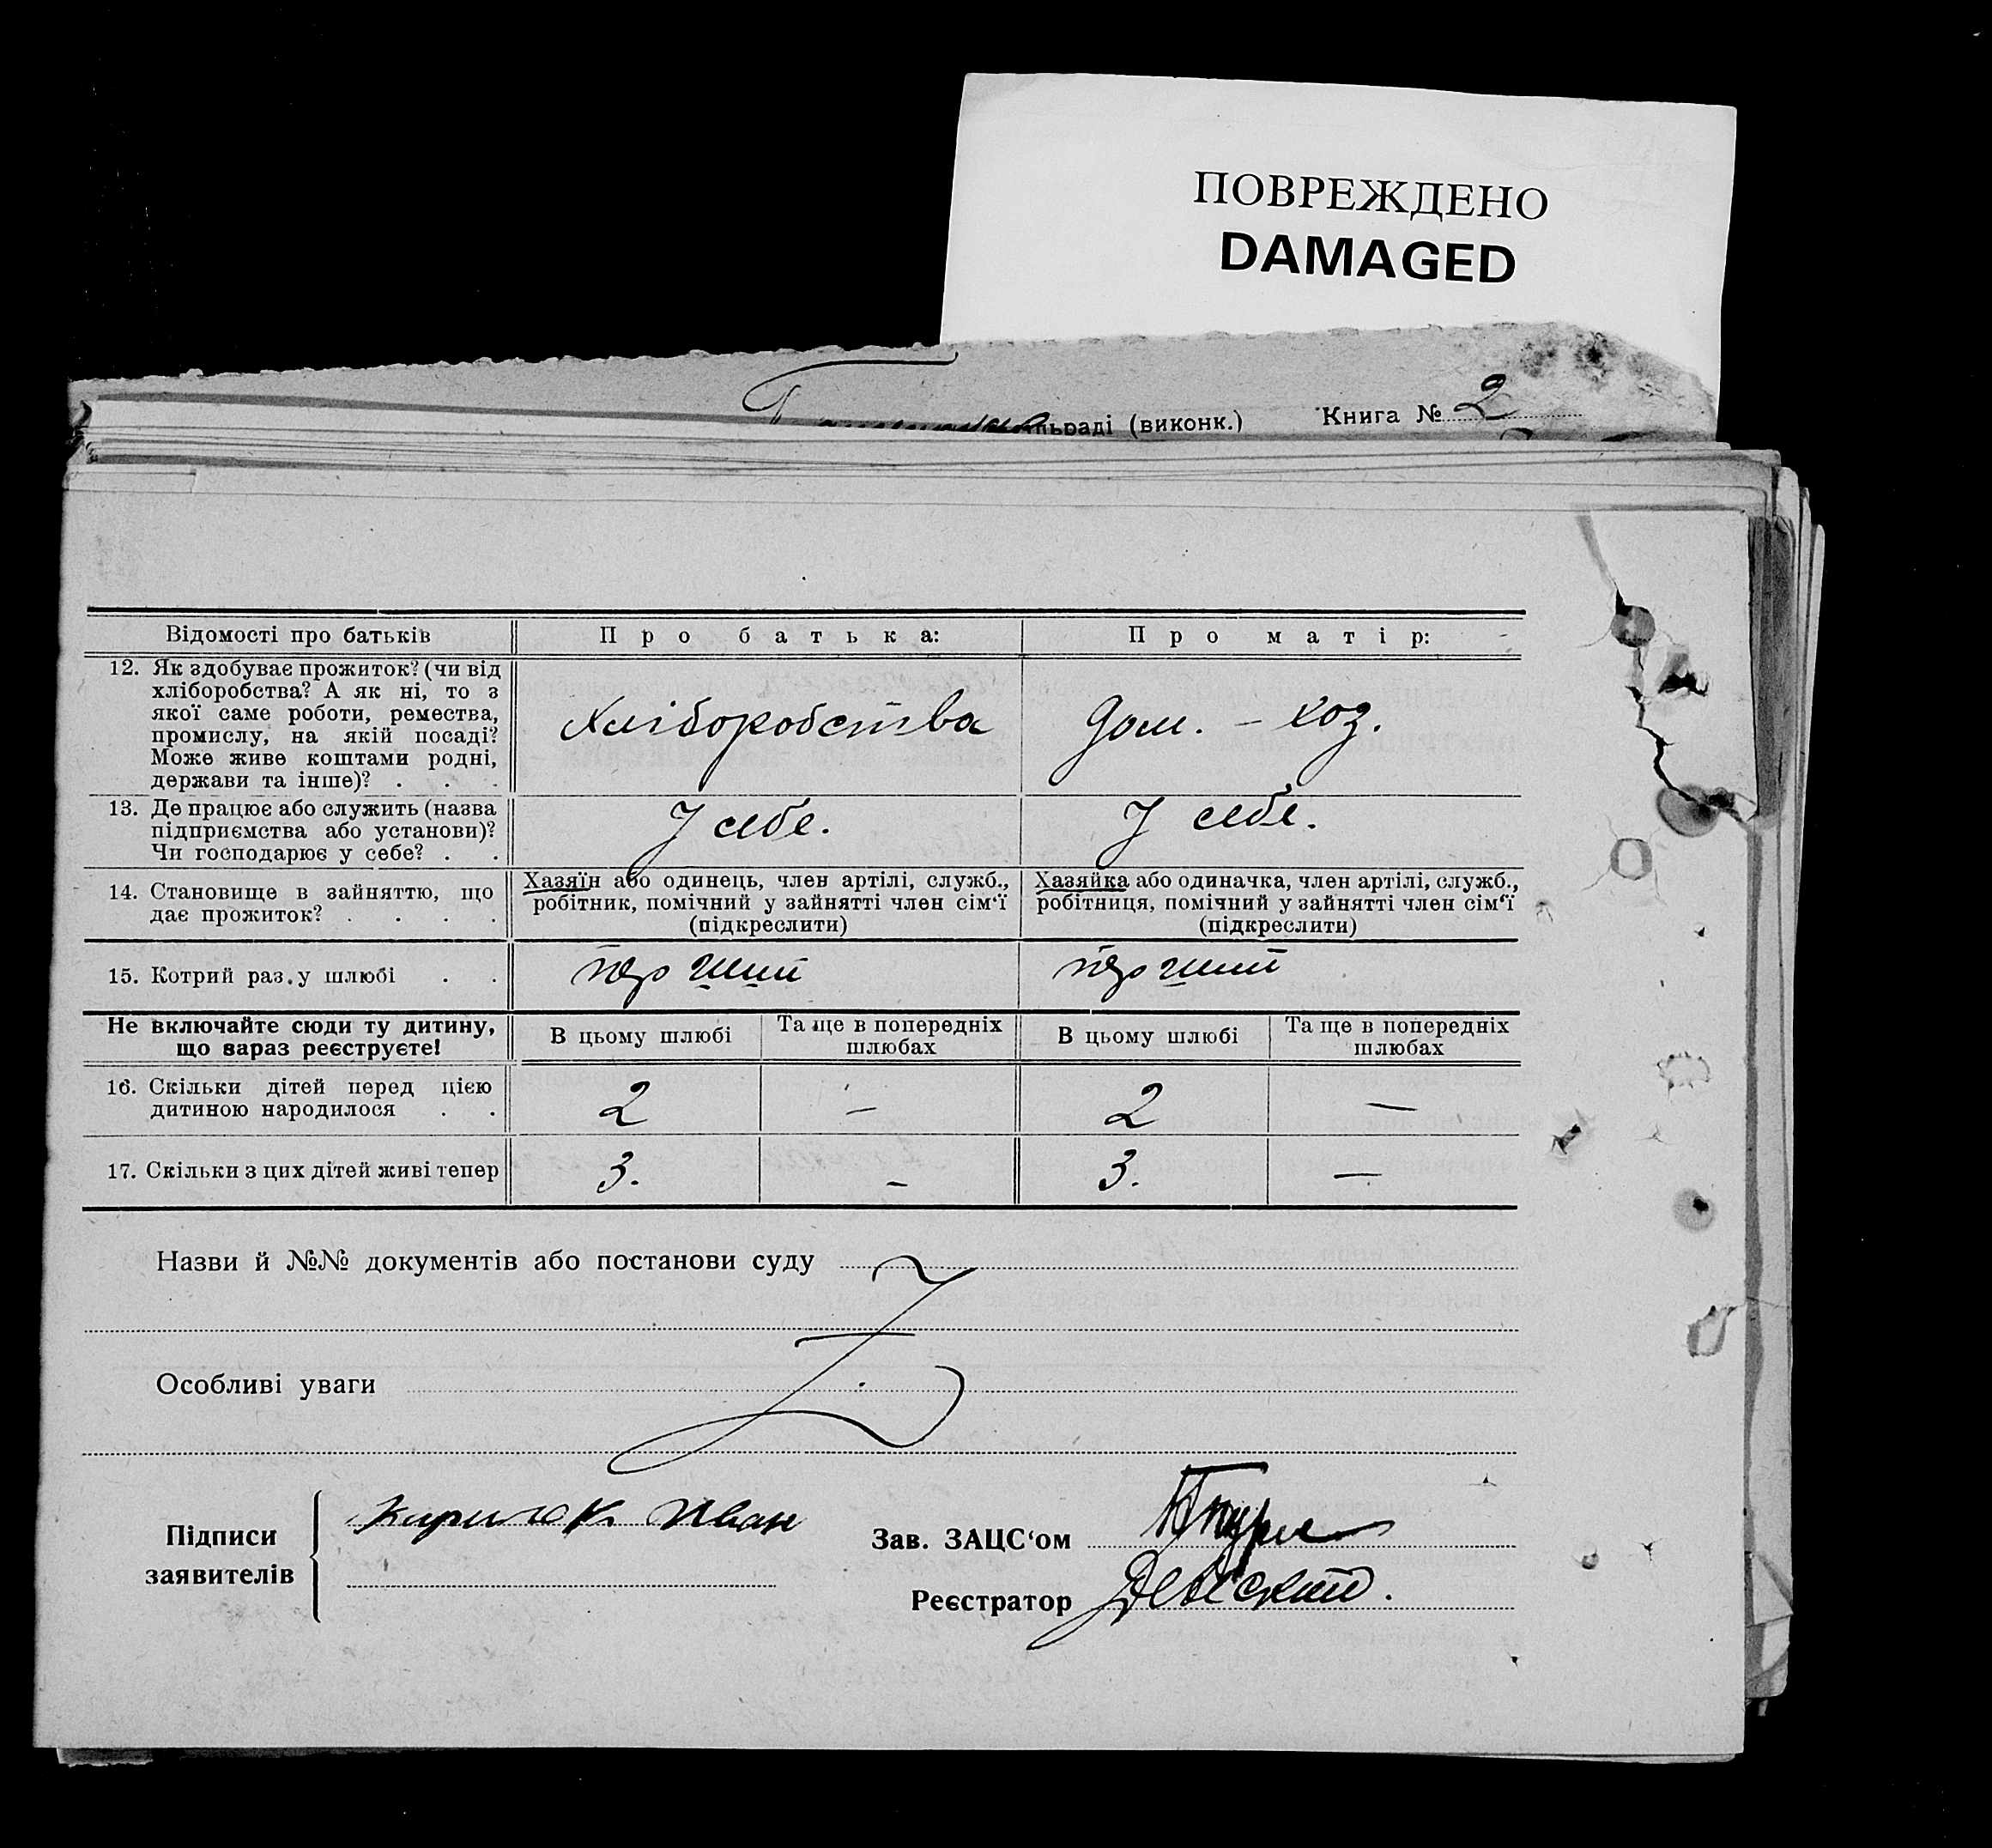 ПОВРЕЖДЕНО
DAMAGED
льраді (виконк.) Книга № 2
Відомості про батьків Про батька: Про матір:
12. Як здобуває прожиток? (чи від
хліборобства? А як ні, то з
якої саме роботи, ремества,
промислу, на якій посаді?
Може живе коштами родні,
держави та інше)? . . .
Хліборобства Дом. – хоз.
13. Де працює або служить (назва
підприємства або установи)?
Чи господарює у себе? . .
У себе. У себе.
14. Становище в зайняттю, що
дає прожиток? . . . .
Хазяїн або одинець, член артілі, служб.,
робітник, помічний у зайнятті член сім‘ї
(підкреслити)
Хазяйка або одиначка, член артілі, служб.,
робітниця, помічний у зайнятті член сім‘ї
(підкреслити)
15. Котрий раз у шлюбі . . перший перший
Не включайте сюди ту дитину,
що вараз реєструєте!
В цьому шлюбі Та ще в попередніх
шлюбах
В цьому шлюбі Та ще в попередніх
шлюбах
16. Скільки дітей перед цією
дитиною народилося . .
2 – 2 –
17. Скільки з цих дітей живі тепер 3. – 3. –
Назви й №№ документів або постанови суду
Особливі уваги
Підписи
заявителів
Иван
Зав. ЗАЦС‘ом
Реєстратор